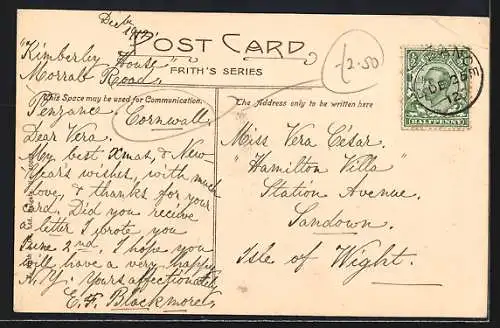 Dec 1912
POST CARD
FRITH'S SERIES
£2.50
"Kimberley House"
Morrab Road,
This Space may be used for Communication.
Penzance
Cornwall.
Dear Vera.
My best Xmas, & New
Years wishes, with much
love, & thanks for your
card. Did you receive
a letter I wrote you
June 2nd. I hope you
will have a very happy
N. Y. Yours affectionately,
E. F. Blackmore.
The Address only to be written here
Miss Vera César.
"Hamilton Villa"
Station Avenue.
Sandown.
Isle of Wight.
DE 26
12
HALFPENNY